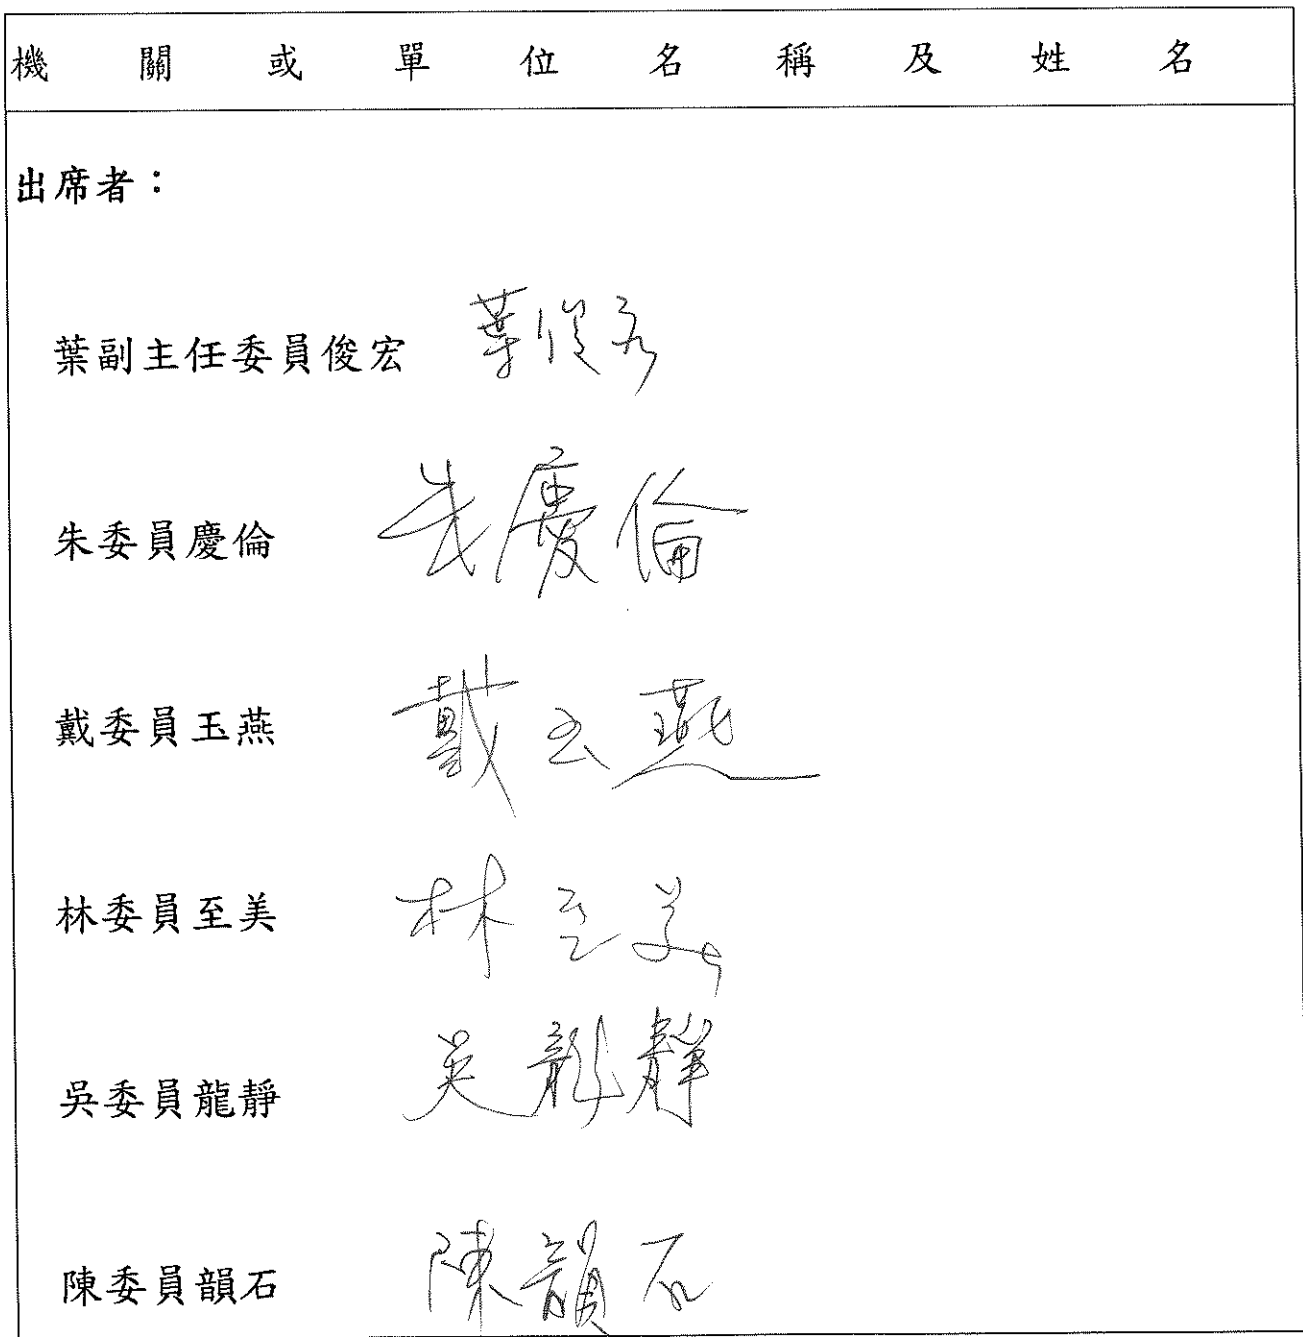 機關或單位名稱及姓名
出席者：
葉副主任委員俊宏 葉俊宏
朱委員慶倫 朱慶倫
戴委員玉燕 戴玉燕
林委員至美 林至美
吳委員龍靜 吳龍靜
陳委員韻石 陳韻石